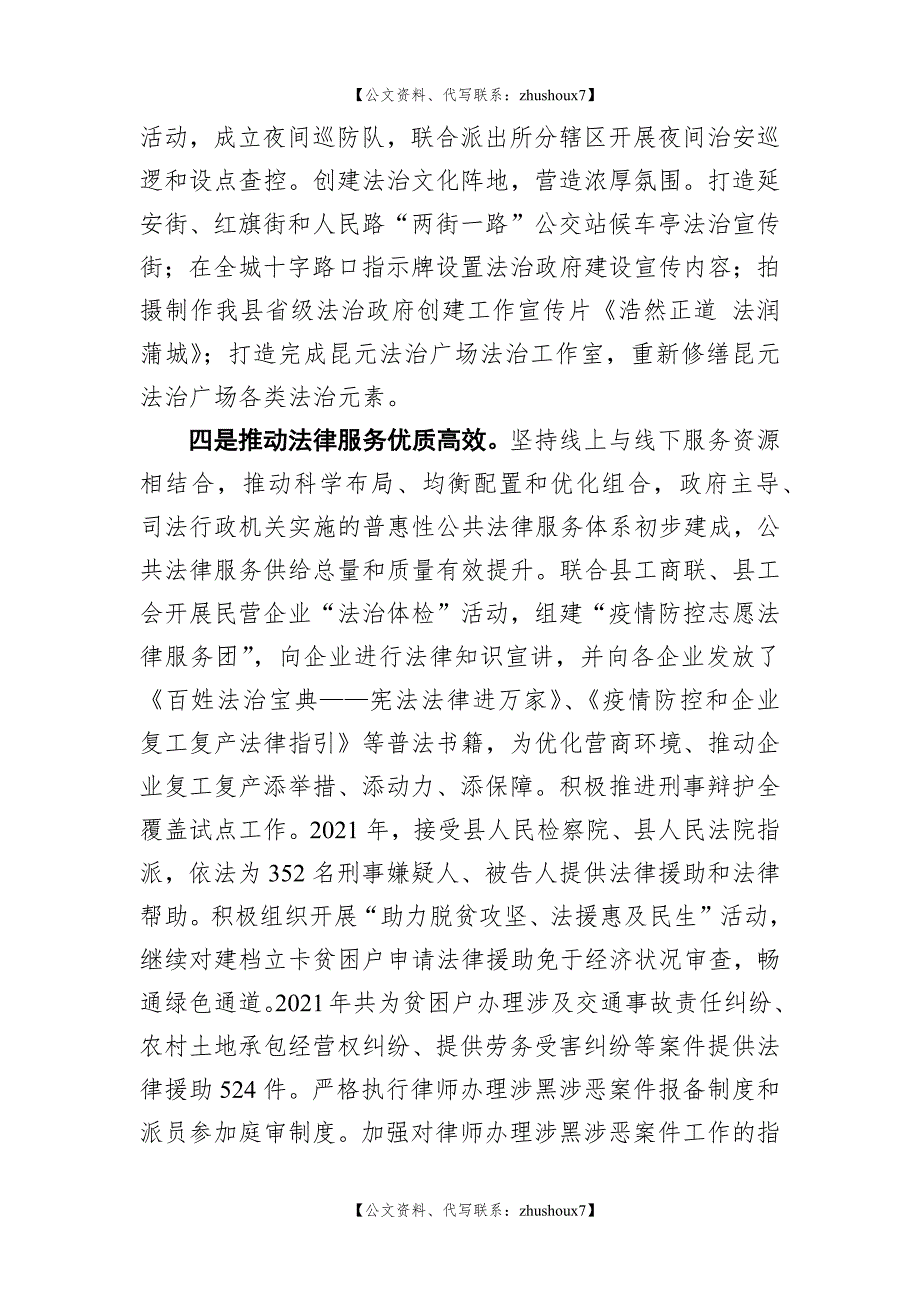 【公文资料、代写联系：zhushoux7】
活动，成立夜间巡防队，联合派出所分辖区开展夜间治安巡
逻和设点查控。创建法治文化阵地，营造浓厚氛围。打造延
安街、红旗街和人民路“两街一路”公交站候车亭法治宣传
街；在全城十字路口指示牌设置法治政府建设宣传内容；拍
摄制作我县省级法治政府创建工作宣传片《浩然正道 法润
蒲城》；打造完成昆元法治广场法治工作室，重新修缮昆元
法治广场各类法治元素。
四是推动法律服务优质高效。坚持线上与线下服务资源
相结合，推动科学布局、均衡配置和优化组合，政府主导、
司法行政机关实施的普惠性公共法律服务体系初步建成，公
共法律服务供给总量和质量有效提升。联合县工商联、县工
会开展民营企业“法治体检”活动，组建“疫情防控志愿法
律服务团”，向企业进行法律知识宣讲，并向各企业发放了
《百姓法治宝典——宪法法律进万家》、《疫情防控和企业
复工复产法律指引》等普法书籍，为优化营商环境、推动企
业复工复产添举措、添动力、添保障。积极推进刑事辩护全
覆盖试点工作。2021 年，接受县人民检察院、县人民法院指
派，依法为 352 名刑事嫌疑人、被告人提供法律援助和法律
帮助。积极组织开展“助力脱贫攻坚、法援惠及民生”活动，
继续对建档立卡贫困户申请法律援助免于经济状况审查，畅
通绿色通道。2021 年共为贫困户办理涉及交通事故责任纠纷、
农村土地承包经营权纠纷、提供劳务受害纠纷等案件提供法
律援助 524 件。严格执行律师办理涉黑涉恶案件报备制度和
派员参加庭审制度。加强对律师办理涉黑涉恶案件工作的指
【公文资料、代写联系：zhushoux7】